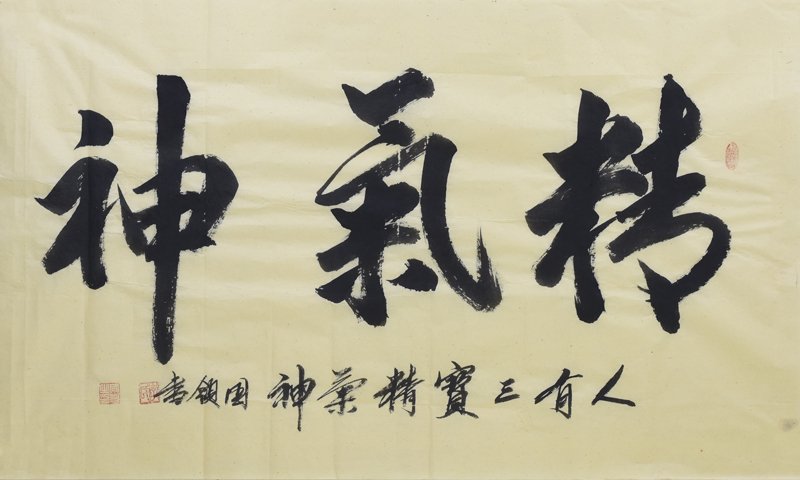 精氣神
人有三寶精氣神国锁書